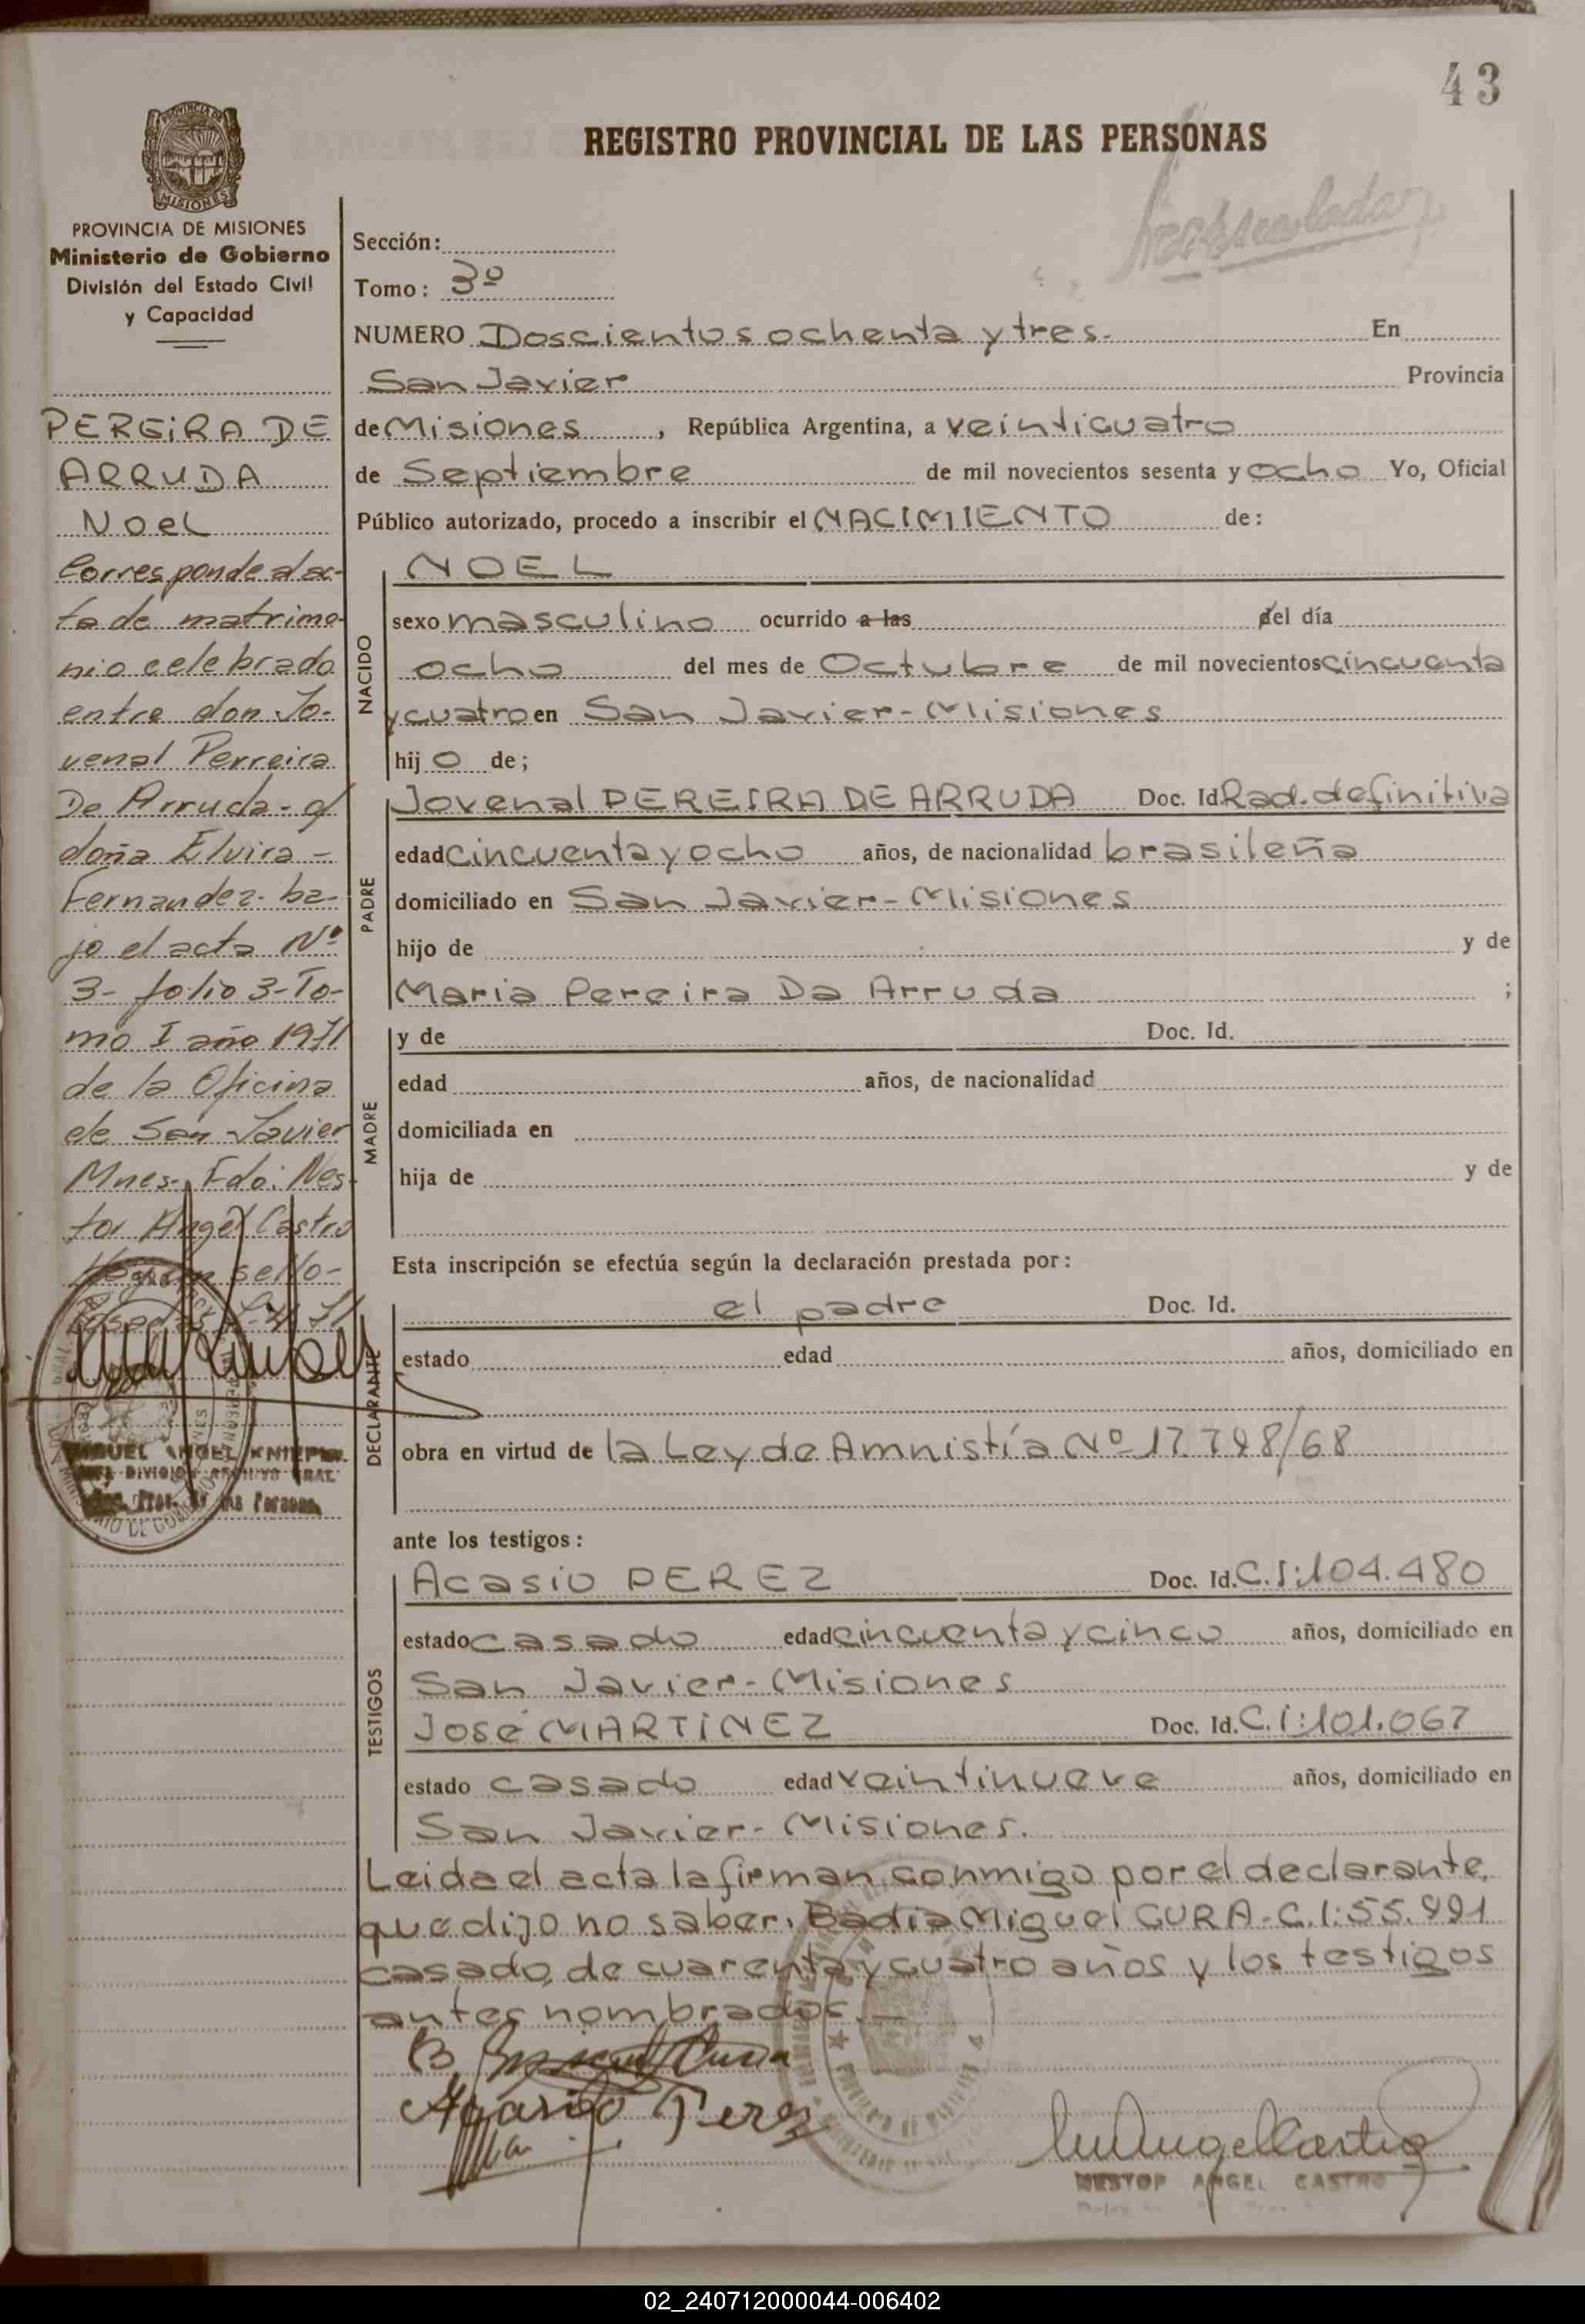 43
REGISTRO PROVINCIAL DE LAS PERSONAS
PROVINCIA DE
MISIONES
PROVINCIA DE MISIONES
Ministerio de Gobierno
División del Estado Civil
y Capacidad
PEREIRA DE
ARRUDA
Noel
Corresponde al ac-
ta de matrimo-
nio celebrado
entre don Jo-
venal Perreira
De Arruda - y
doña Elvira -
Fernandez - ba-
jo el acta Nº
3 - folio 3 - To-
mo I año 1971
de la Oficina
de San Javier
Mnes. Fdo: Nes-
tor Angel Castro
sello -
MIGUEL ANGEL KNIEPP
DIVISION ARCHIVO GRAL
las Personas
Sección:
Tomo: 3º
NUMERO Doscientos ochenta y tres. En
San Javier Provincia
de Misiones, República Argentina, a veinticuatro
de Septiembre de mil novecientos sesenta y ocho Yo, Oficial
Público autorizado, procedo a inscribir el NACIMIENTO de:
NACIDO
NOEL
sexo masculino ocurrido a las del día
ocho del mes de Octubre de mil novecientos cincuenta
y cuatro en San Javier - Misiones
hijo de;
PADRE
Jovenal PEREIRA DE ARRUDA Doc. Id. Rad. definitiva
edad cincuenta y ocho años, de nacionalidad brasileña
domiciliado en San Javier - Misiones
hijo de y de
Maria Pereira Da Arruda ;
MADRE
y de Doc. Id.
edad años, de nacionalidad
domiciliada en
hija de y de
Esta inscripción se efectúa según la declaración prestada por:
DECLARANTE
el padre Doc. Id.
estado edad años, domiciliado en
obra en virtud de la Ley de Amnistía Nº 17.798/68
ante los testigos:
TESTIGOS
Acasio PEREZ Doc. Id. C.I:104.480
estado casado edad cincuenta y cinco años, domiciliado en
San Javier - Misiones
José MARTINEZ Doc. Id. C.I:101.067
estado casado edad veintinueve años, domiciliado en
San Javier - Misiones.
Leida el acta la firman conmigo por el declarante,
que dijo no saber, Badia Miguel CURA - C.I:55.991
casado, de cuarenta y cuatro años y los testigos
antes nombrados. -
Perez
NESTOR ANGEL CASTRO
02_240712000044-006402